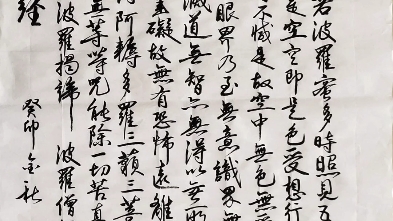 若波羅蜜多時照見五
是空空即是色受想行
不滅是故空中無色無
眼界乃至無意識界無
滅道無智亦無得以無所
罣礙故無有恐怖遠離
得阿耨多羅三藐三菩
無等等咒能除一切苦真
波羅揭諦 波羅僧
經
癸卯金秋